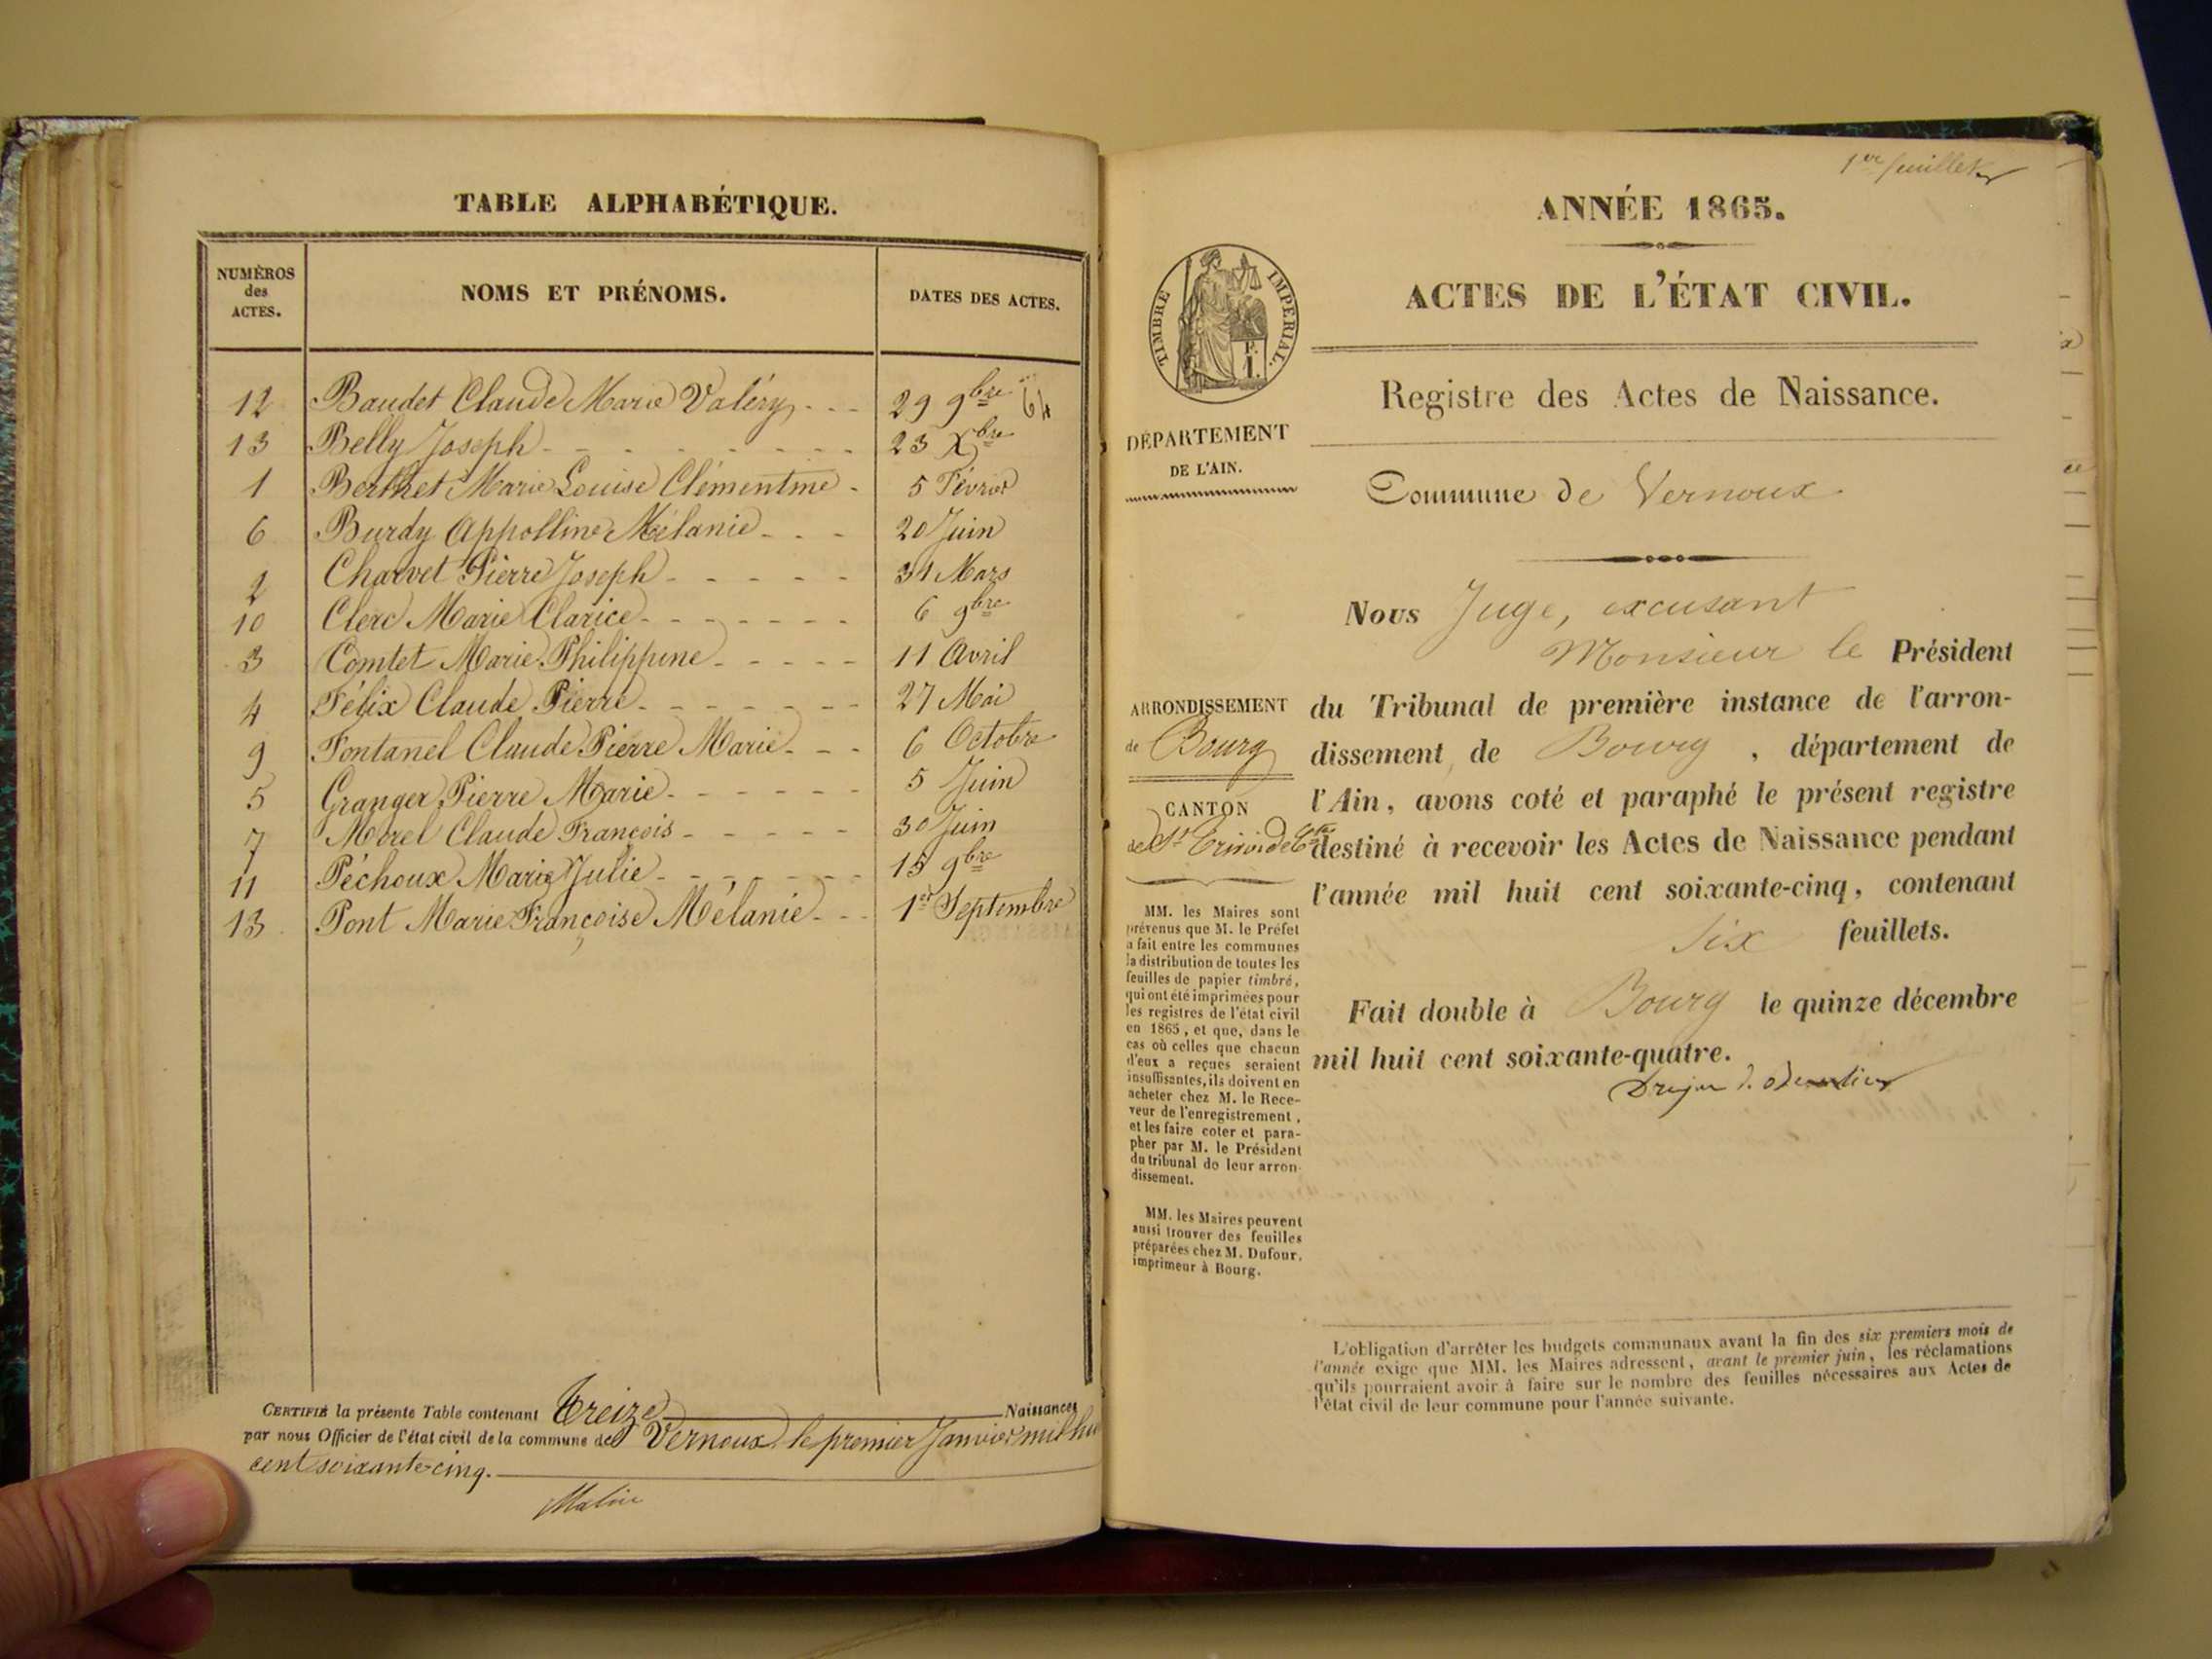 TABLE ALPHABÉTIQUE.
NUMÉROS des ACTES. NOMS ET PRÉNOMS. DATES DES ACTES.
12 Baudet Claude Marie Valéry 29 9bre 64
13 Belly Joseph 23 Xbre
1 Berthet Marie Louise Clémentine 5 Février
6 Burdy Appolline Mélanie 20 Juin
2 Charvet Pierre Joseph 31 Mars
10 Clerc Marie Clarice 6 9bre
3 Comtet Marie Philippine 11 Avril
4 Félix Claude Pierre 27 Mai
9 Fontanel Claude Pierre Marie 6 Octobre
5 Granger Pierre Marie 5 Juin
7 Morel Claude François 30 Juin
11 Péchoux Marie Julie 15 9bre
13 Pont Marie Françoise Mélanie 1er Septembre
CERTIFIÉ la présente Table contenant Treize Naissances
par nous Officier de l'état civil de la commune de Vernoux le premier Janvier mil hu
cent soixante-cinq.
1er feuillet
ANNÉE 1865.
ACTES DE L'ÉTAT CIVIL.
TIMBRE IMPÉRIAL.
Registre des Actes de Naissance.
DÉPARTEMENT
DE L'AIN.
Commune de Vernoux
Nous Juge, excusant
Monsieur le Président
du Tribunal de première instance de l'arron-
dissement de Bourg, département de
l'Ain, avons coté et paraphé le présent registre
destiné à recevoir les Actes de Naissance pendant
l'année mil huit cent soixante-cinq, contenant
six feuillets.
Fait double à Bourg le quinze décembre
mil huit cent soixante-quatre.
ARRONDISSEMENT
de Bourg
CANTON
de St
MM. les Maires sont
prévenus que M. le Préfet
a fait entre les communes
la distribution de toutes les
feuilles de papier timbré,
qui ont été imprimées pour
les registres de l'état civil
en 1865, et que, dans le
cas où celles que chacun
d'eux a reçues seraient
insuffisantes, ils doivent en
acheter chez M. le Rece-
veur de l'enregistrement,
et les faire coter et para-
pher par M. le Président
du tribunal de leur arron-
dissement.
MM. les Maires peuvent
aussi trouver des feuilles
préparées chez M. Dufour,
imprimeur à Bourg.
L'obligation d'arrêter les budgets communaux avant la fin des six premiers mois de
l'année exige que MM. les Maires adressent, avant le premier juin, les réclamations
qu'ils pourraient avoir à faire sur le nombre des feuilles nécessaires aux Actes de
l'état civil de leur commune pour l'année suivante.